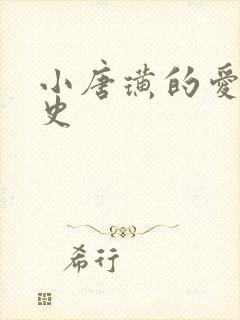 小唐璜的愛
史
希行